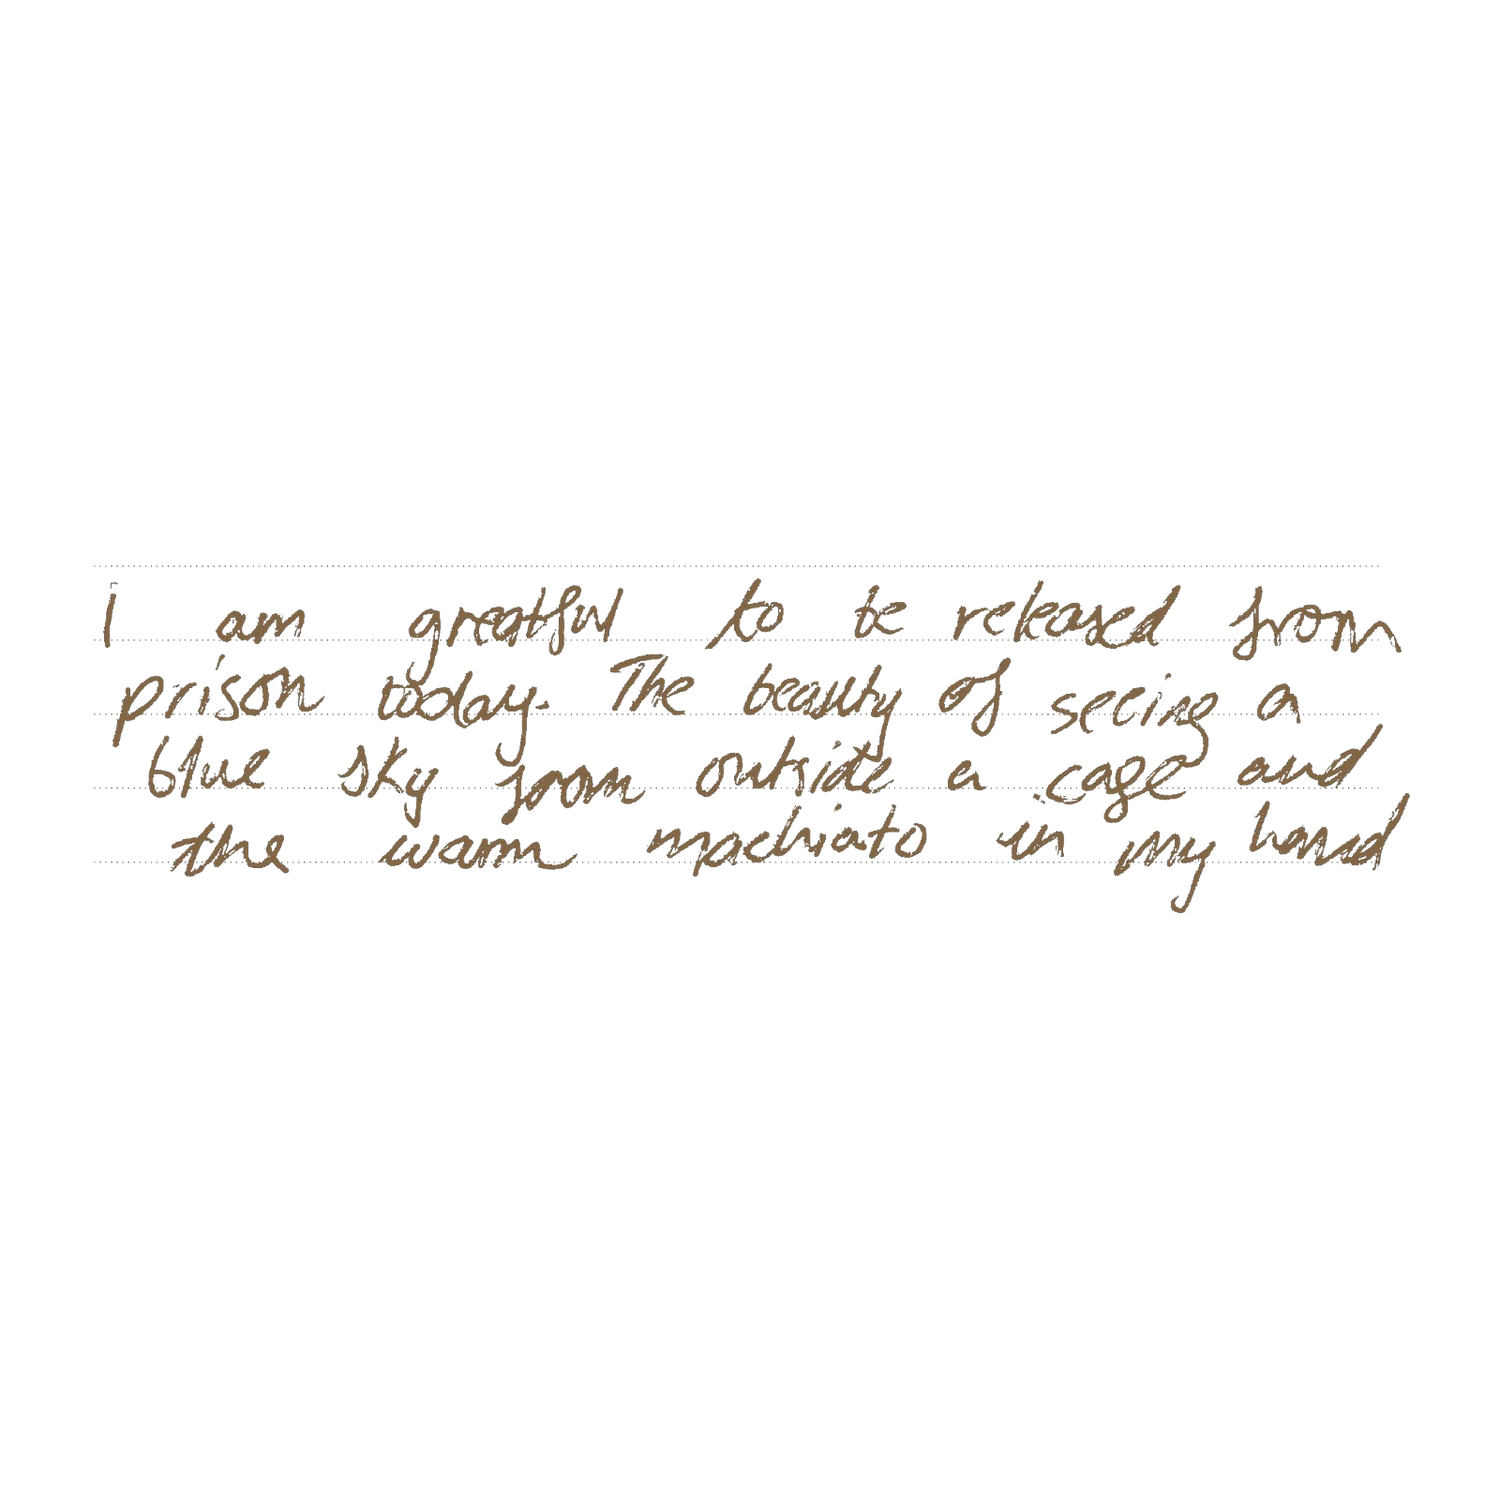 I am greatful to be released from
prison today. The beauty of seeing a
blue sky from outside a cage and
the warm machiato in my hand